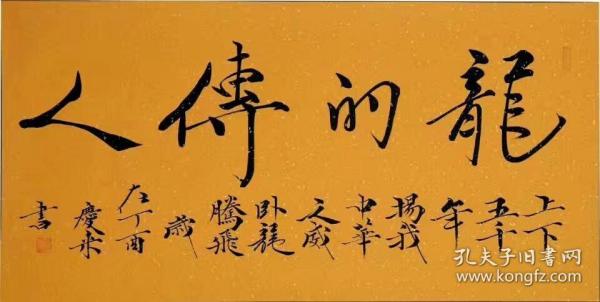 龍的傳人
上下
五千
年
揚我
中華
之威
卧龍
騰飛
歲
在丁酉
慶
書
孔夫子旧书网
www.kongfz.com